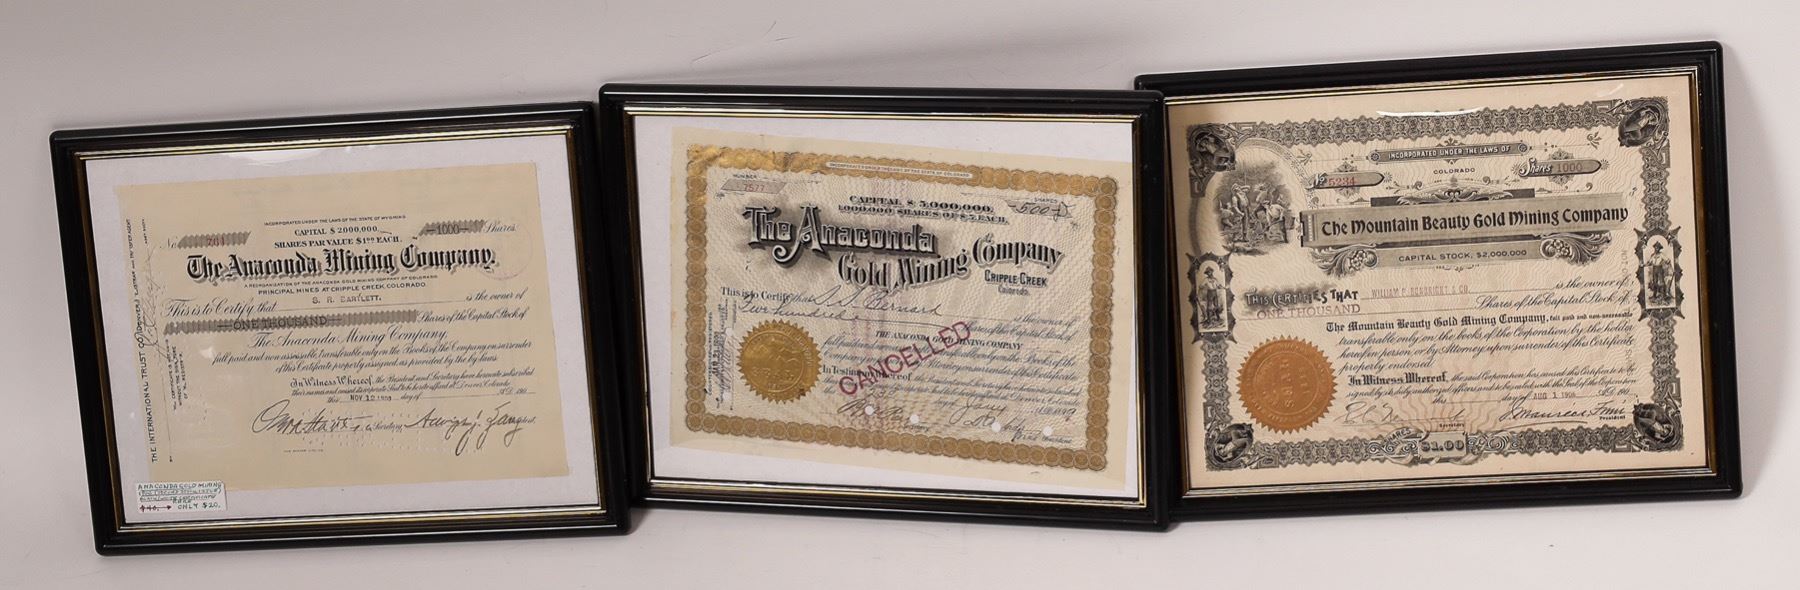 THE INTERNATIONAL TRUST CO
INCORPORATED UNDER THE LAWS OF THE STATE OF WYOMING
CAPITAL $2000000.
SHARES PAR VALUE $1.00 EACH.
No 201
1000 Shares
The Anaconda Mining Company.
A REORGANIZATION OF THE ANACONDA GOLD MINING COMPANY OF COLORADO.
PRINCIPAL MINES AT CRIPPLE CREEK, COLORADO.
This is to Certify that S. R. BARTLETT. is the owner of
ONE THOUSAND Shares of the Capital Stock of
The Anaconda Mining Company.
full paid and non assessable, transferable only on the Books of the Company on surrender
of this Certificate properly assigned as provided by the by laws.
In Witness Whereof, the President and Secretary have hereunto subscribed
their names and caused its corporate Seal to be hereto affixed at Denver, Colorado
this NOV 12 1900 day of A.D. 190
Secretary
ANACONDA GOLD MINING
RARE
$40. → ONLY $20.
INCORPORATED UNDER THE LAWS OF THE STATE OF COLORADO.
NUMBER
7577
SHARES
500
CAPITAL $5,000,000.
1,000,000 SHARES OF $5 EACH.
The Anaconda
Gold Mining Company
CRIPPLE CREEK
Colorado.
This is to Certify that Bernard is the owner of
Five hundred Shares of the Capital Stock of
THE ANACONDA GOLD MINING COMPANY
CANCELLED
INCORPORATED UNDER THE LAWS OF
COLORADO
No 5234
Shares 1000
The Mountain Beauty Gold Mining Company
CAPITAL STOCK, $2,000,000
THIS CERTIFIES THAT WILLIAM P. BONBRIGHT & CO. is the owner of
ONE THOUSAND Shares of the Capital Stock of
The Mountain Beauty Gold Mining Company, full paid and non-assessable
transferable only on the books of the Corporation by the holder
hereof in person or by Attorney upon surrender of this Certificate
properly endorsed.
In Witness Whereof, the said Corporation has caused this Certificate to be
signed by its duly authorized officers and to be sealed with the Seal of the Corporation
this day of AUG 1 1906 A.D. 190
Secretary
President
SHARES $1.00 EACH